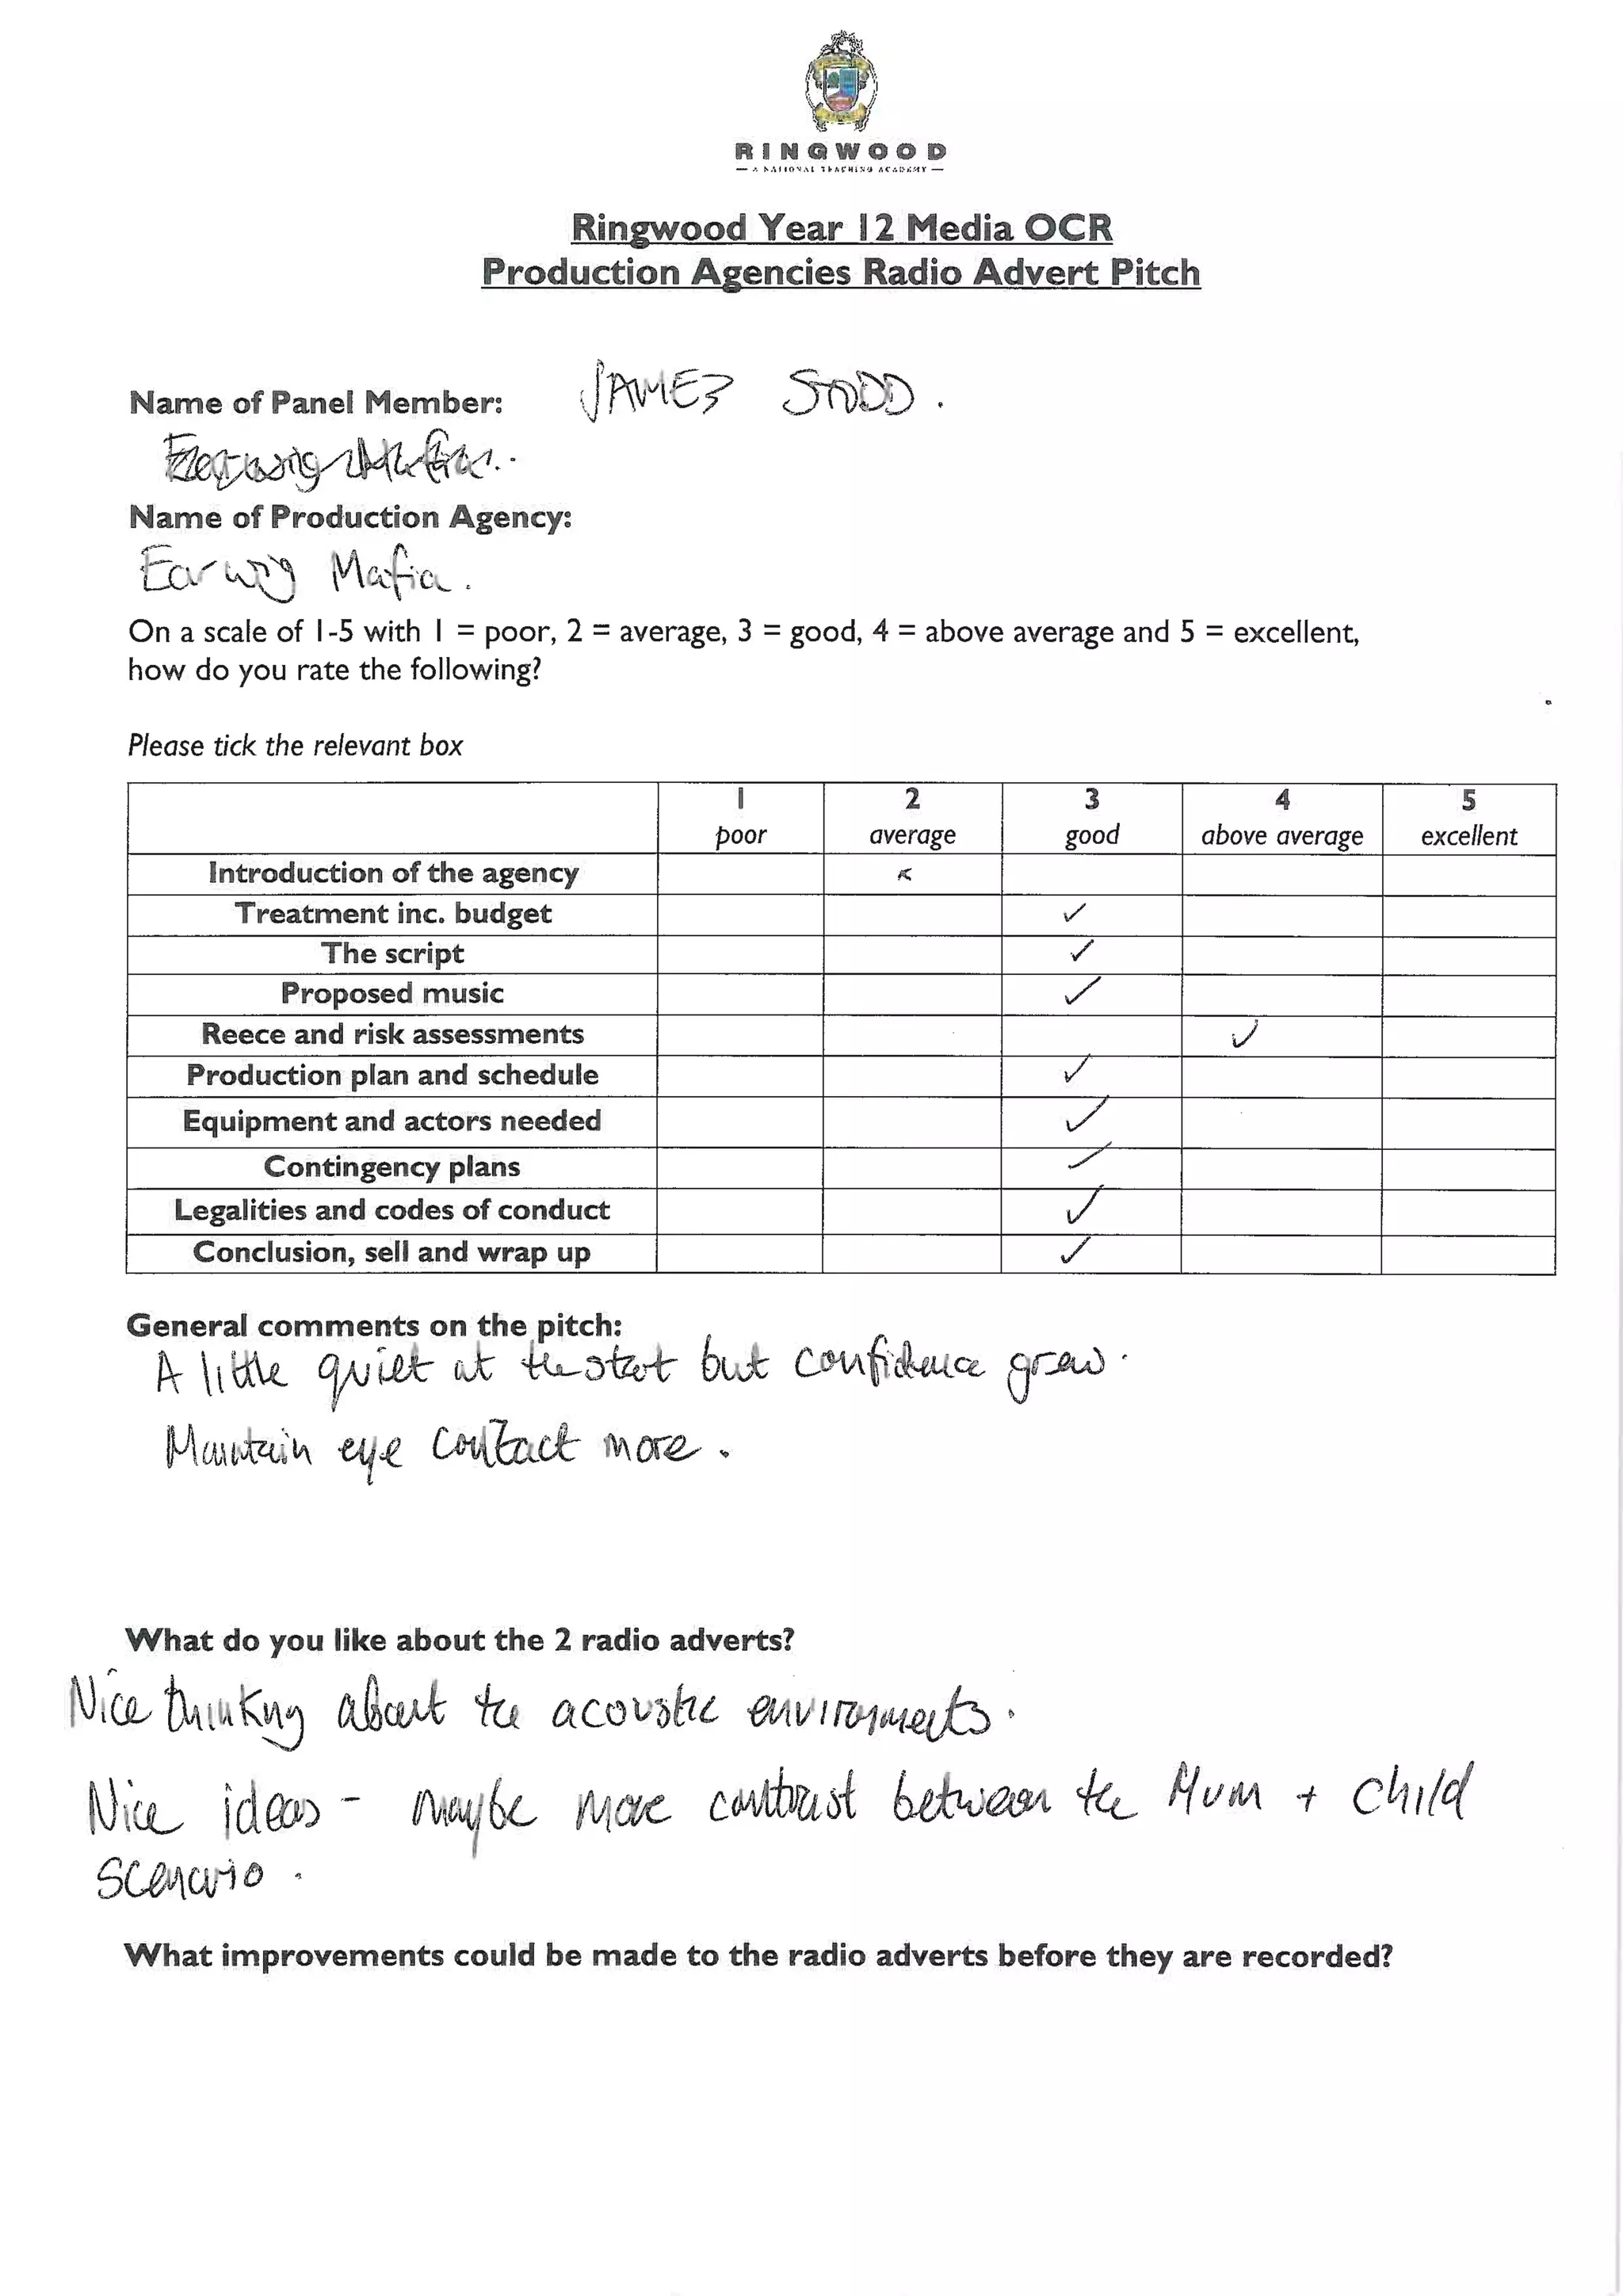 RINGWOOD
— A NATIONAL TEACHING ACADEMY —
Ringwood Year 12 Media OCR
Production Agencies Radio Advert Pitch
Name of Panel Member: JAMES
Name of Production Agency:
Earwig Mafia.
On a scale of 1-5 with 1 = poor, 2 = average, 3 = good, 4 = above average and 5 = excellent,
how do you rate the following?
Please tick the relevant box
1 2 3 4 5
poor average good above average excellent
Introduction of the agency
Treatment inc. budget ✓
The script ✓
Proposed music ✓
Reece and risk assessments ✓
Production plan and schedule ✓
Equipment and actors needed ✓
Contingency plans ✓
Legalities and codes of conduct ✓
Conclusion, sell and wrap up ✓
General comments on the pitch:
A little quiet at the start but confidence grew.
Maintain eye contact more.
What do you like about the 2 radio adverts?
Nice thinking about the acoustic environments.
Nice ideas - maybe more contrast between the Mum + child
scenario.
What improvements could be made to the radio adverts before they are recorded?